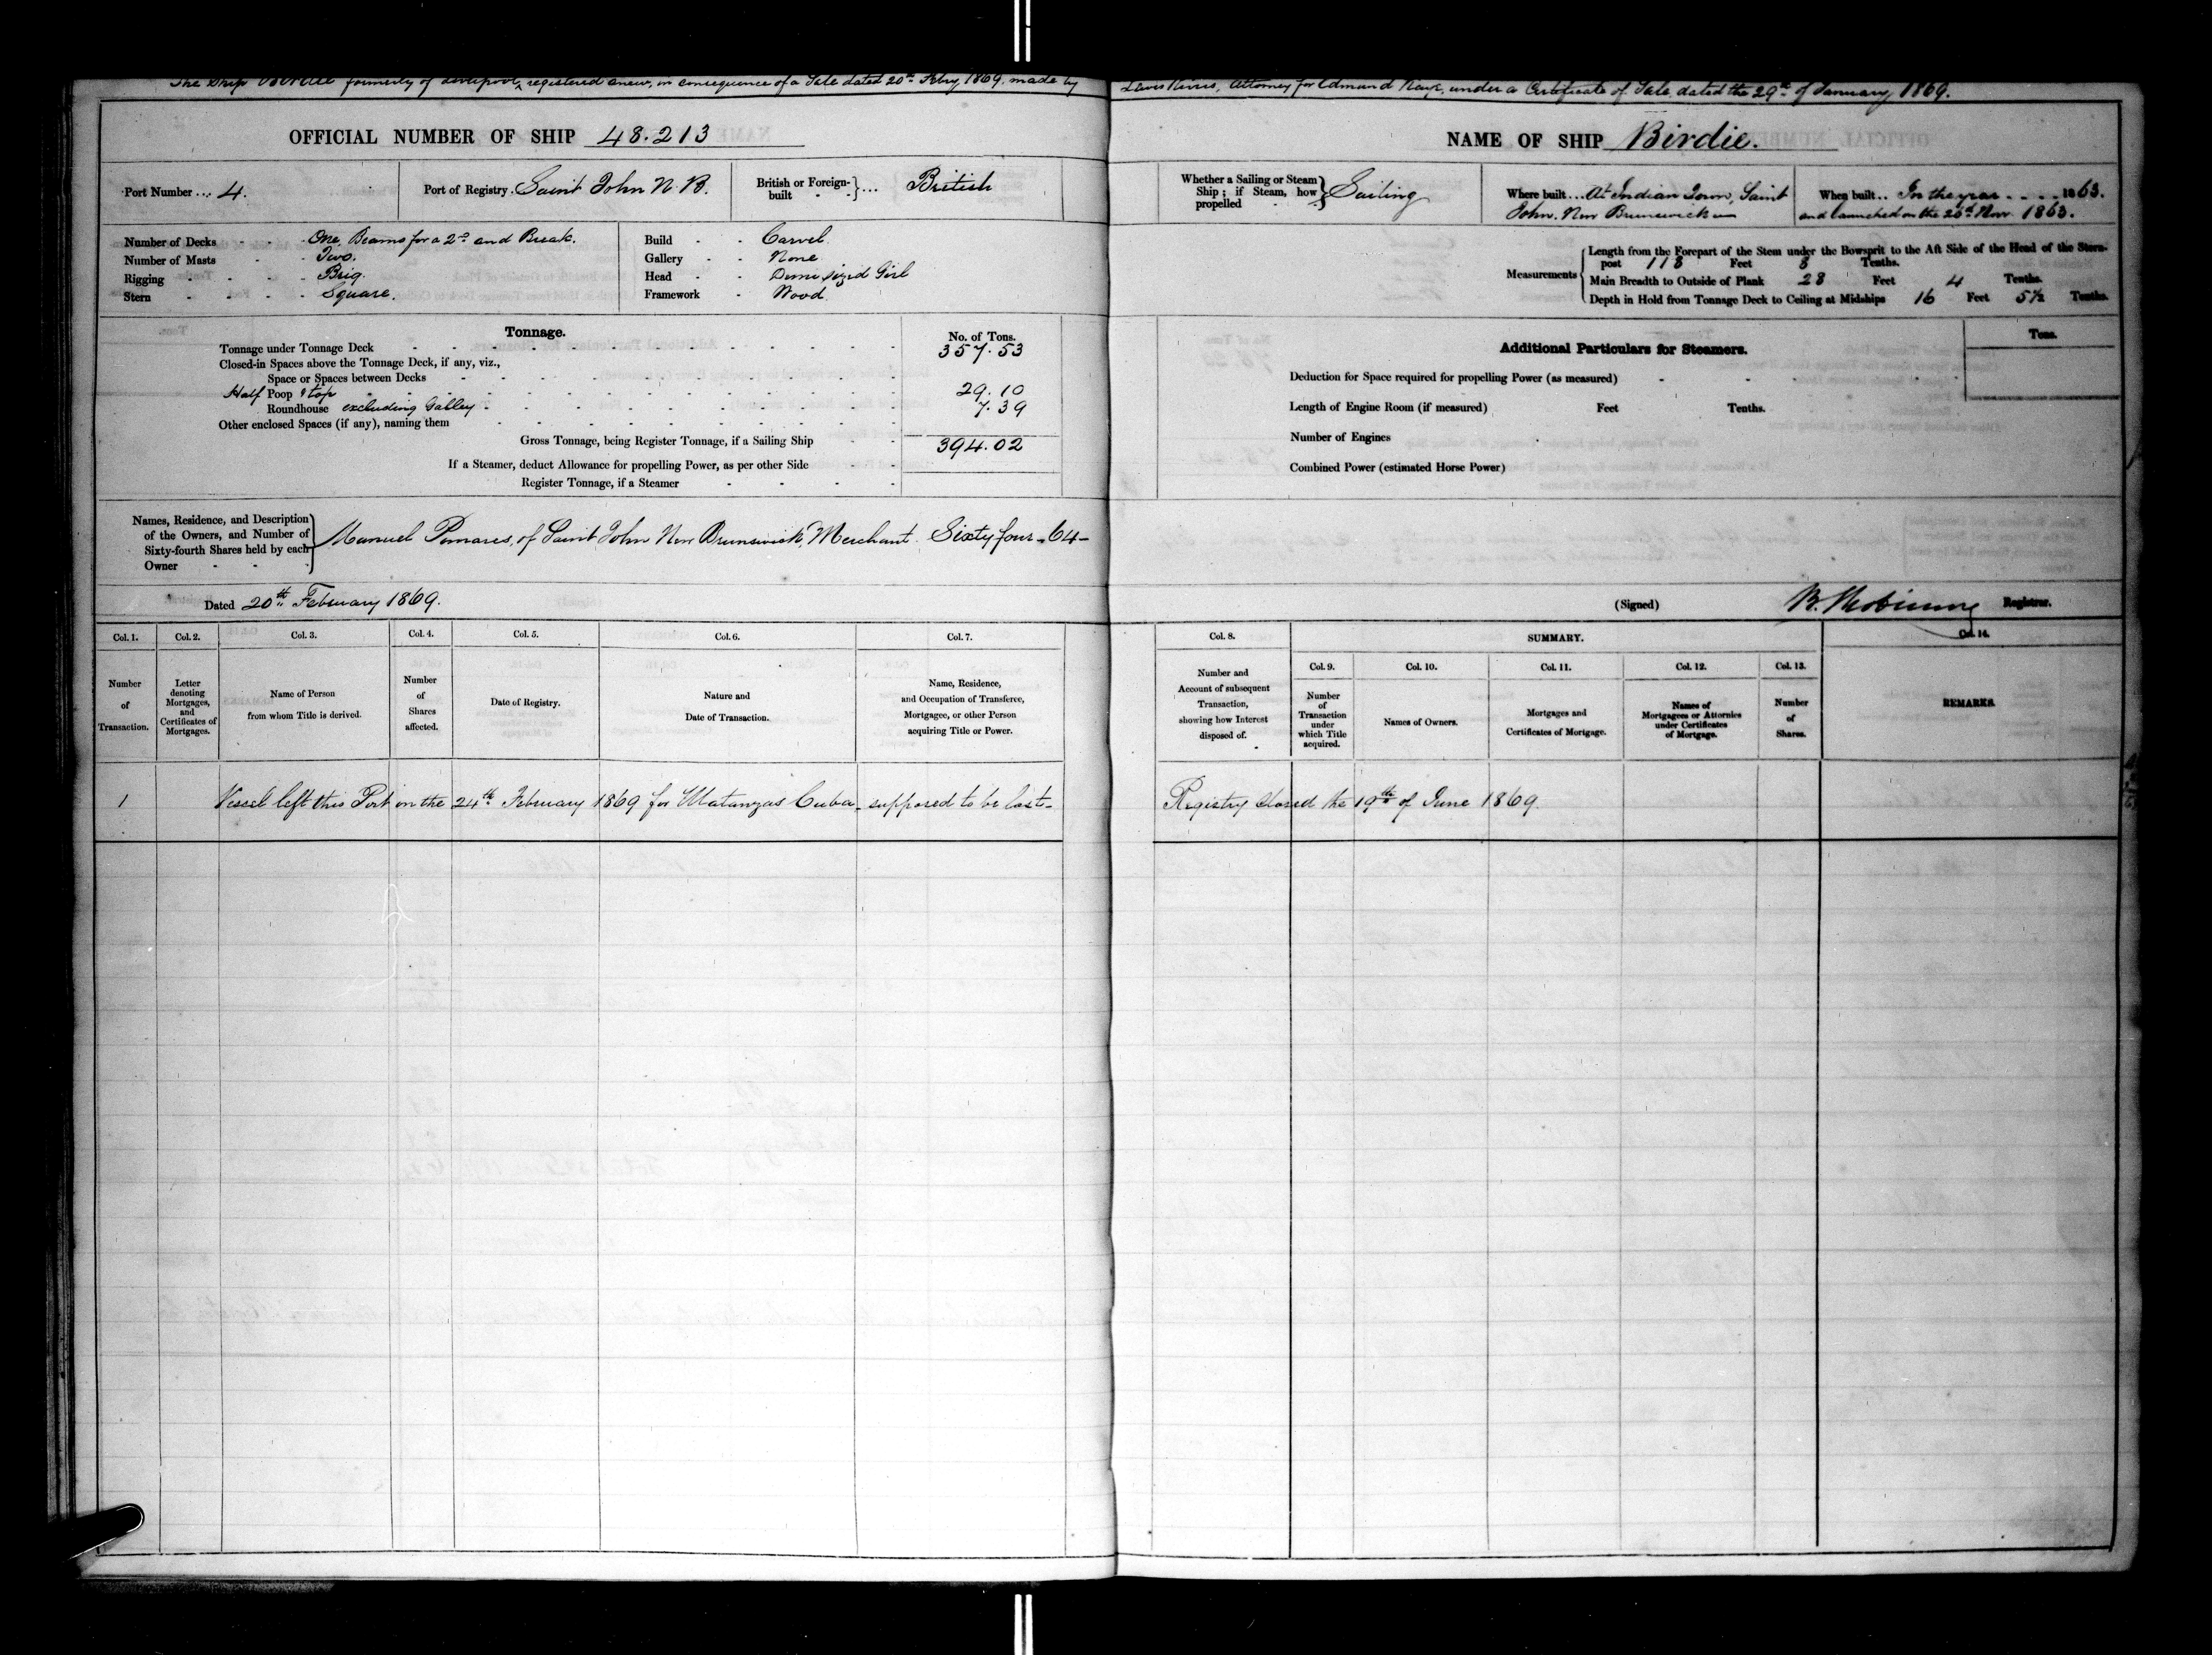 The Ship Birdie formerly of Liverpool, registered anew, in consequence of a Sale dated 20th Febry 1869. made by
OFFICIAL NUMBER OF SHIP 48.213
Port Number ... 4.
Port of Registry. Saint John N.B.
British or Foreign-built } ... British
Number of Decks - - - One, Beams for a 2nd and Break.
Number of Masts - - Two.
Rigging - - - - Brig.
Stern - - - - Square.
Build - - Carvel
Gallery - - None
Head - - Demi sized Girl
Framework - Wood
Tonnage.
No. of Tons.
Tonnage under Tonnage Deck 357.53
Closed-in Spaces above the Tonnage Deck, if any, viz.,
Space or Spaces between Decks
Half Poop & top 29.10
Roundhouse excluding Galley 7.39
Other enclosed Spaces (if any), naming them
Gross Tonnage, being Register Tonnage, if a Sailing Ship 394.02
If a Steamer, deduct Allowance for propelling Power, as per other Side
Register Tonnage, if a Steamer
Names, Residence, and Description
of the Owners, and Number of
Sixty-fourth Shares held by each
Owner
Manuel Pomares, of Saint John New Brunswick, Merchant. Sixty four - 64 -
Dated 20th February 1869.
Col. 1. Col. 2. Col. 3. Col. 4. Col. 5. Col. 6. Col. 7.
Number
of
Transaction.
Letter
denoting
Mortgages,
and
Certificates of
Mortgages.
Name of Person
from whom Title is derived.
Number
of
Shares
affected.
Date of Registry.
Nature and
Date of Transaction.
Name, Residence,
and Occupation of Transferee,
Mortgagee, or other Person
acquiring Title or Power.
1 Vessel left this Port on the 24th February 1869 for Matanzas Cuba - supposed to be lost -
Attorney for Edmund under a Certificate of Sale dated the 29th of January 1869.
NAME OF SHIP Birdie.
Whether a Sailing or Steam
Ship; if Steam, how
propelled
Sailing
Where built ... At Indian Town, Saint
John, New Brunswick
When built .. In the year - - - - 1863.
and launched on the Nov 1863.
Measurements
Length from the Forepart of the Stem under the Bowsprit to the Aft Side of the Head of the Stern-
post 118 Feet 8 Tenths.
Main Breadth to Outside of Plank 28 Feet 4 Tenths.
Depth in Hold from Tonnage Deck to Ceiling at Midships 16 Feet 5½ Tenths.
Additional Particulars for Steamers.
Tons.
Deduction for Space required for propelling Power (as measured)
Length of Engine Room (if measured) Feet Tenths.
Number of Engines
Combined Power (estimated Horse Power)
(Signed) Registrar.
Col. 8. SUMMARY. Col. 14.
Col. 9. Col. 10. Col. 11. Col. 12. Col. 13.
Number and
Account of subsequent
Transaction,
showing how Interest
disposed of.
Number
of
Transaction
under
which Title
acquired.
Names of Owners.
Mortgages and
Certificates of Mortgage.
Names of
Mortgagees or Attornies
under Certificates
of Mortgage.
Number
of
Shares.
REMARKS.
Registry closed the 19th of June 1869